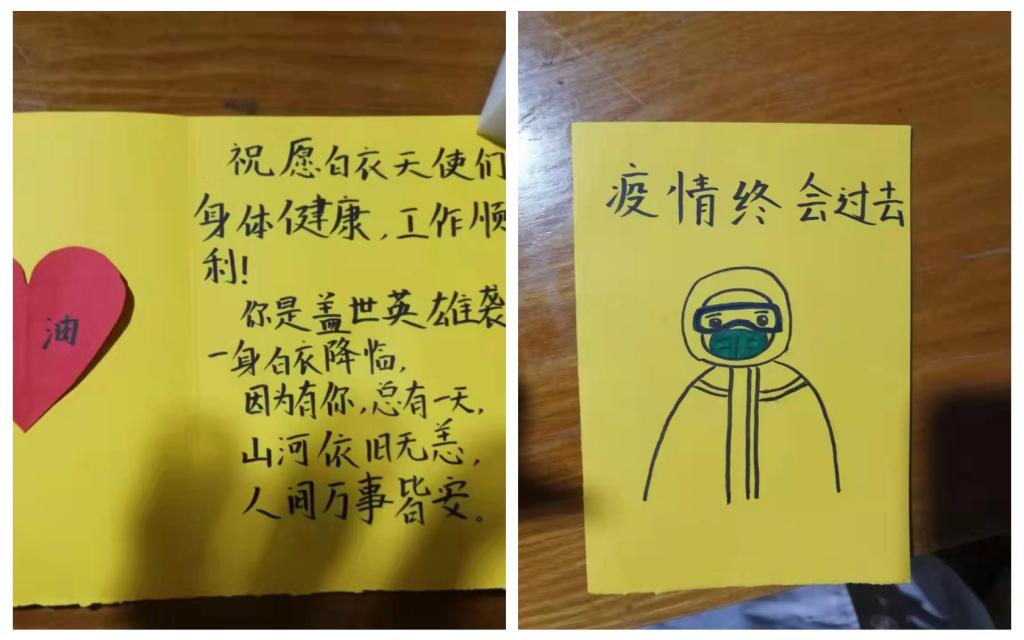 油
祝愿白衣天使们
身体健康,工作顺
利!
你是盖世英雄袭
一身白衣降临,
因为有你,总有一天,
山河依旧无恙,
人间万事皆安。
疫情终会过去